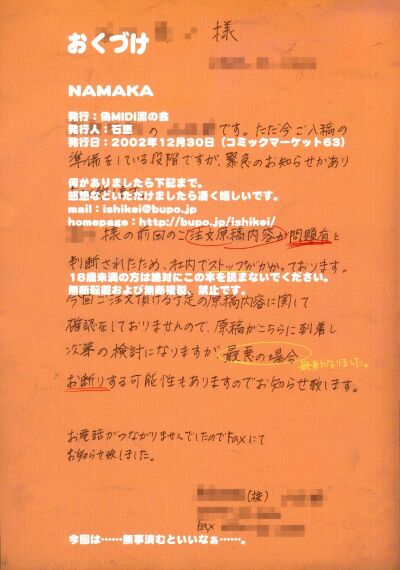 様
おくづけ
NAMAKA
発行：偽MIDI泥の会
発行人：石恵
の です。ただ今ご入稿の
発行日：2002年12月30日（コミックマーケット63）
準備をしている段階ですが、緊急のお知らせがあり
何かありましたら下記まで。
感想などいただけましたら凄く嬉しいです。
mail：ishikei@bupo.jp
homepage：http://bupo.jp/ishikei/
様の前回のご注文原稿内容が問題有と
判断されたため、社内でストップがかかっております。
18歳未満の方は絶対にこの本を読まないでください。
無断転載および無断複製、禁止です。
今回ご注文頂ける予定の原稿内容に関して
確認をしておりませんので、原稿がこちらに到着し
次第の検討になりますが、最悪の場合
最悪になりました。
お断りする可能性もありますのでお知らせ致します。
お電話がつながりませんでしたのでFaxにて
お知らせ致しました。
(株)
Fax
今回は……無事済むといいなぁ……。